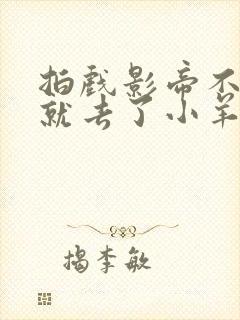 拍戏影帝不
就去了小羊
揭李敏